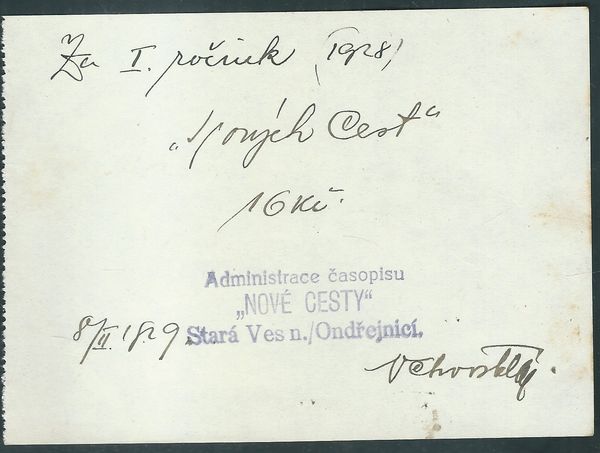 Za I. ročník (1928)
„Nových Cest“
16 Kč.
Administrace časopisu
„NOVÉ CESTY“
8/II. 1929. Stará Ves n./Ondřejnicí.